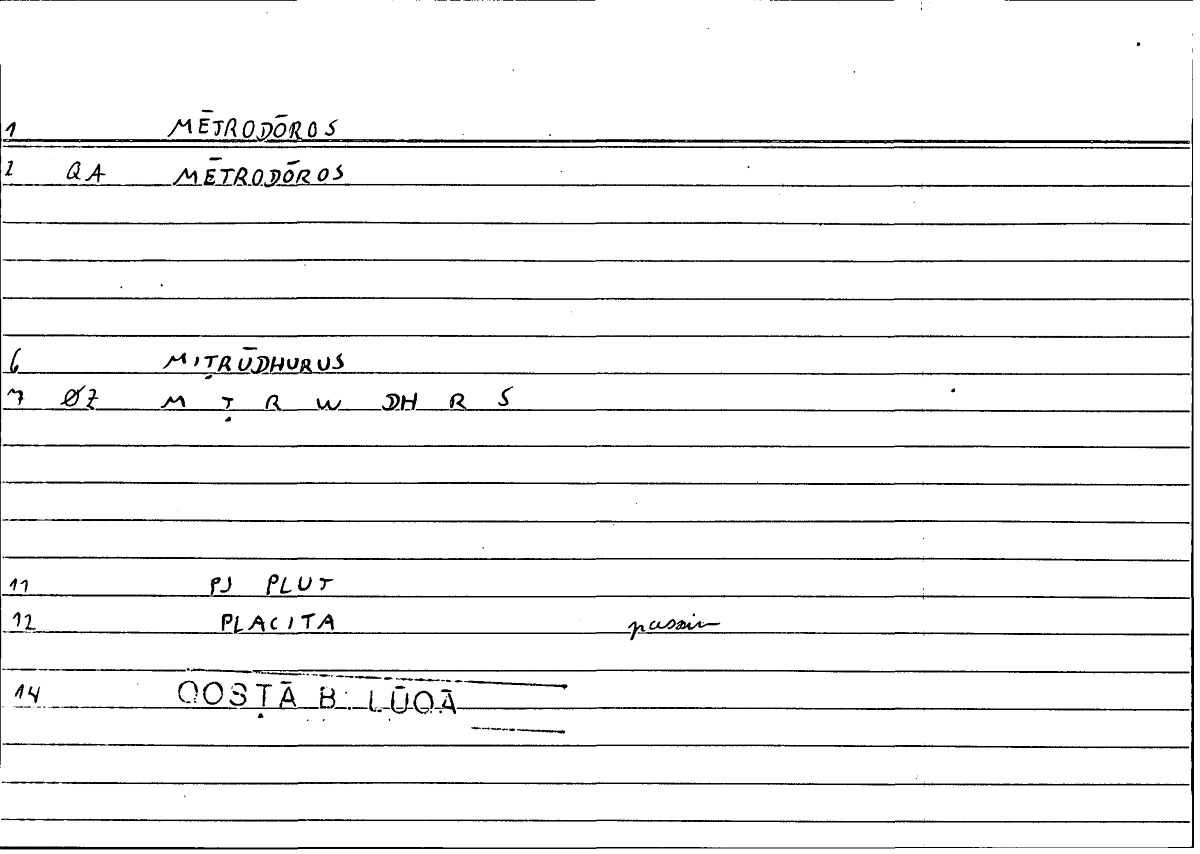 1 MĒTRODŌROS
2 QA MĒTRODŌROS
6 MIṬRŪDHURUS
7 ØZ M Ṭ R W DH R S
11 PJ PLUT
12 PLACITA passim
14 QOSṬĀ B. LŪQĀ